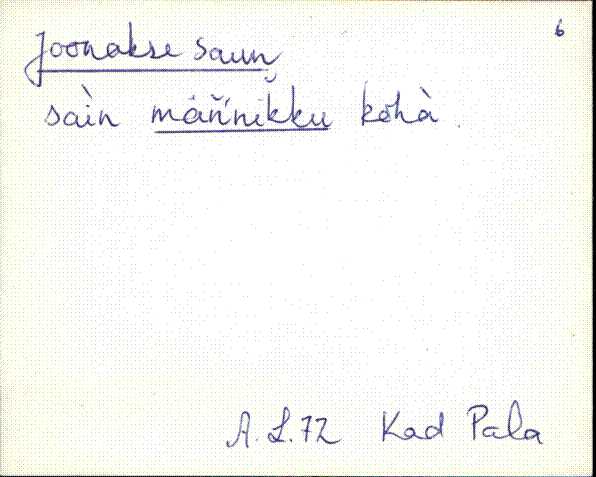 6
Joonakse saun
saìn mäň'nikku kohà.
A. L. 72 Kad Pala